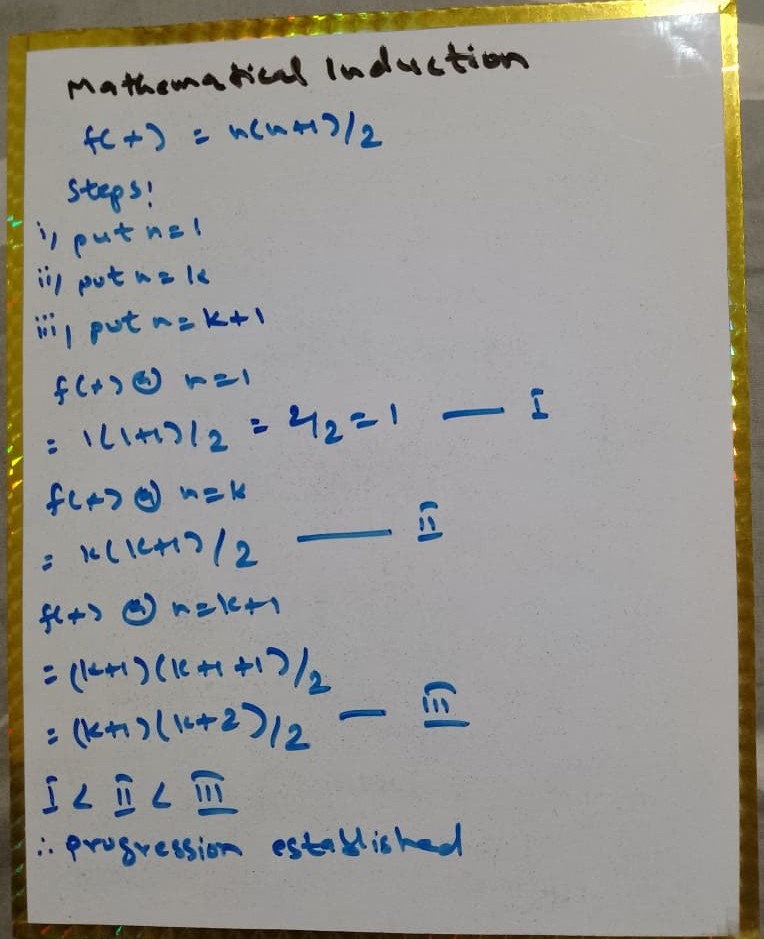 Mathematical Induction
f(+) = n(n+1)/2
Steps:
i, put n=1
ii, put n=k
iii, put n=k+1
f(+) @ n=1
= 1(1+1)/2 = 2/2=1 — I
f(+) @ n=k
= k(k+1)/2 — II
f(+) @ n=k+1
= (k+1)(k+1+1)/2
= (k+1)(k+2)/2 — III
I < II < III
∴ progression established